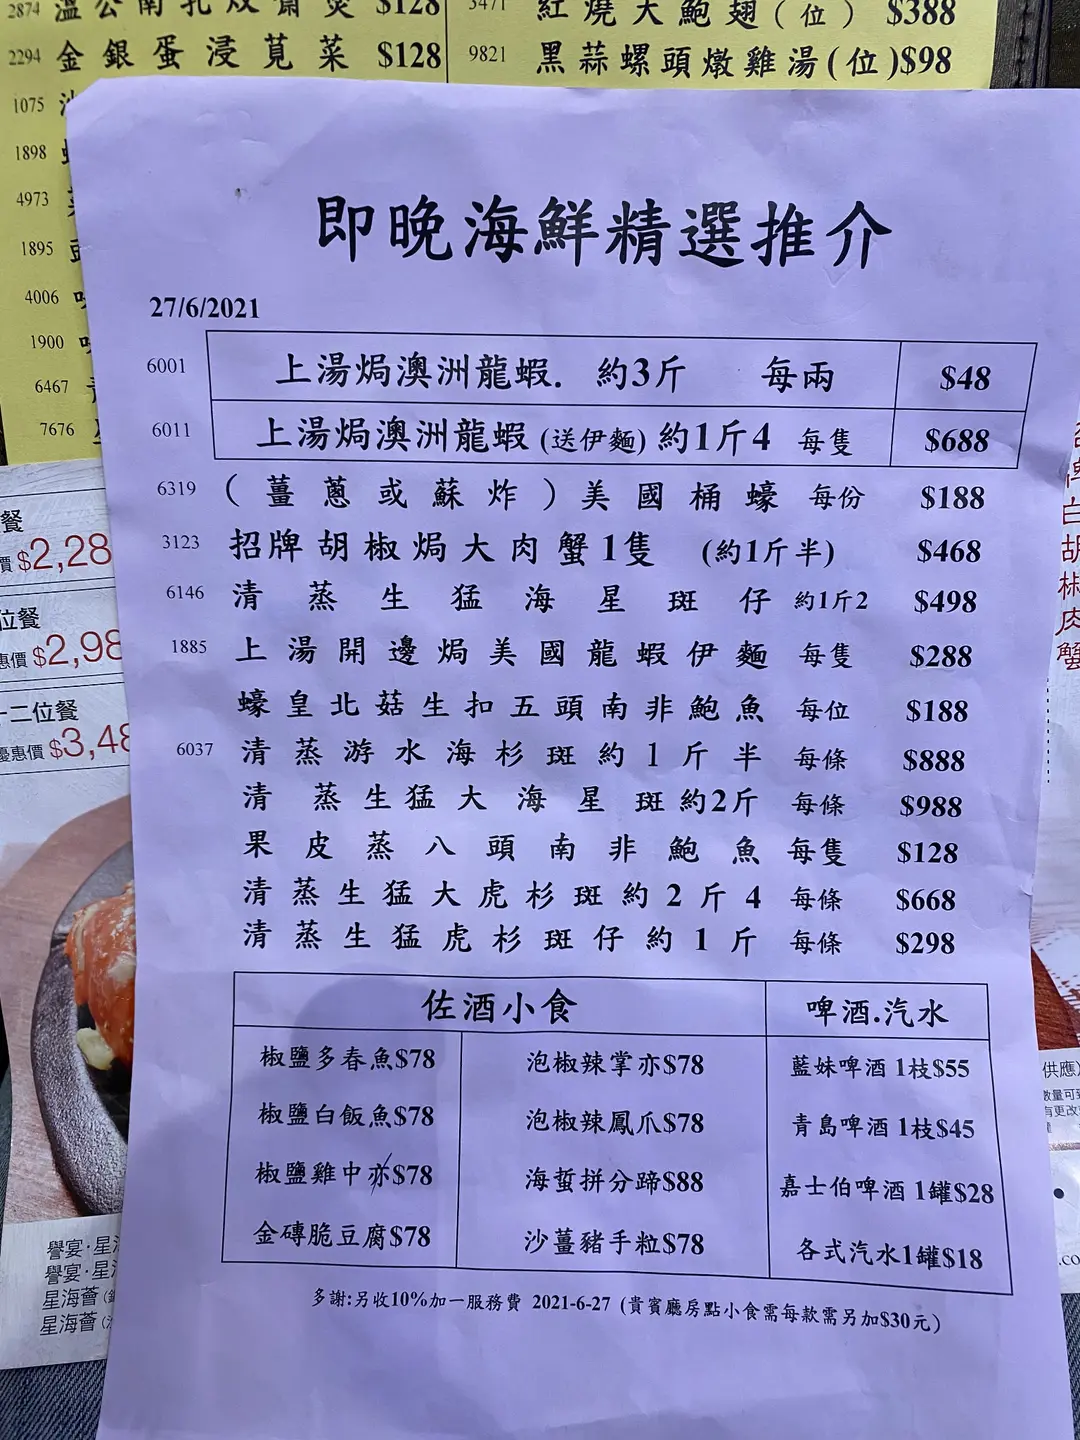 2874 溫公南乳炆齋煲 $128
2294 金銀蛋浸莧菜 $128
3471 紅燒大鮑翅(位) $388
9821 黑蒜螺頭燉雞湯(位)$98
1075
1898
4973
1895
4006
1900
6467
7676
即晚海鮮精選推介
27/6/2021
6001 上湯焗澳洲龍蝦. 約3斤 每兩 $48
6011 上湯焗澳洲龍蝦(送伊麵)約1斤4 每隻 $688
6319 (薑蔥或蘇炸)美國桶蠔 每份 $188
3123 招牌胡椒焗大肉蟹1隻 (約1斤半) $468
6146 清蒸生猛海星斑仔 約1斤2 $498
1885 上湯開邊焗美國龍蝦伊麵 每隻 $288
蠔皇北菇生扣五頭南非鮑魚 每位 $188
6037 清蒸游水海杉斑約1斤半 每條 $888
清蒸生猛大海星斑約2斤 每條 $988
果皮蒸八頭南非鮑魚 每隻 $128
清蒸生猛大虎杉斑約2斤4 每條 $668
清蒸生猛虎杉斑仔約1斤 每條 $298
佐酒小食 啤酒.汽水
椒鹽多春魚$78 泡椒辣掌亦$78 藍妹啤酒 1枝$55
椒鹽白飯魚$78 泡椒辣鳳爪$78 青島啤酒 1枝$45
椒鹽雞中亦$78 海蜇拼分蹄$88 嘉士伯啤酒 1罐$28
金磚脆豆腐$78 沙薑豬手粒$78 各式汽水1罐$18
多謝:另收10%加一服務費 2021-6-27 (貴賓廳房點小食需每款需另加$30元)
餐
價 $2,28
位餐
惠價 $2,98
十二位餐
優惠價 $3,48
譽宴·星
譽宴·星
星海薈
星海薈
牌白胡椒肉蟹
供應)
數量可
有更改
.co